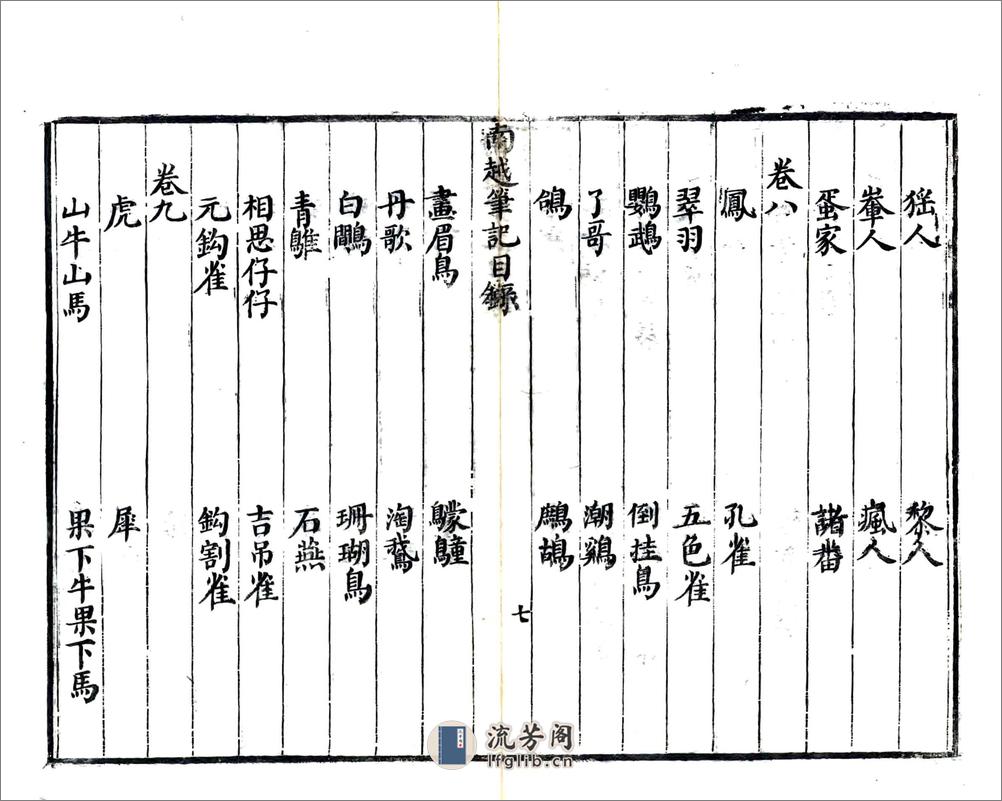 猺人 黎人
輋人 瘋人
蜑家 諸番
卷八
鳳 孔雀
翠羽 五色雀
鸚鵡 倒挂鳥
了哥 潮鷄
鴿 鷓鴣
南越筆記目錄 七
畫眉鳥 䴌鸏
丹歌 淘鵝
白鷴 珊瑚鳥
青鵻 石燕
相思仔仔 吉吊雀
元鈎雀 鈎割雀
卷九
虎 犀
山牛山馬 果下牛果下馬
流芳阁
lfglib.cn